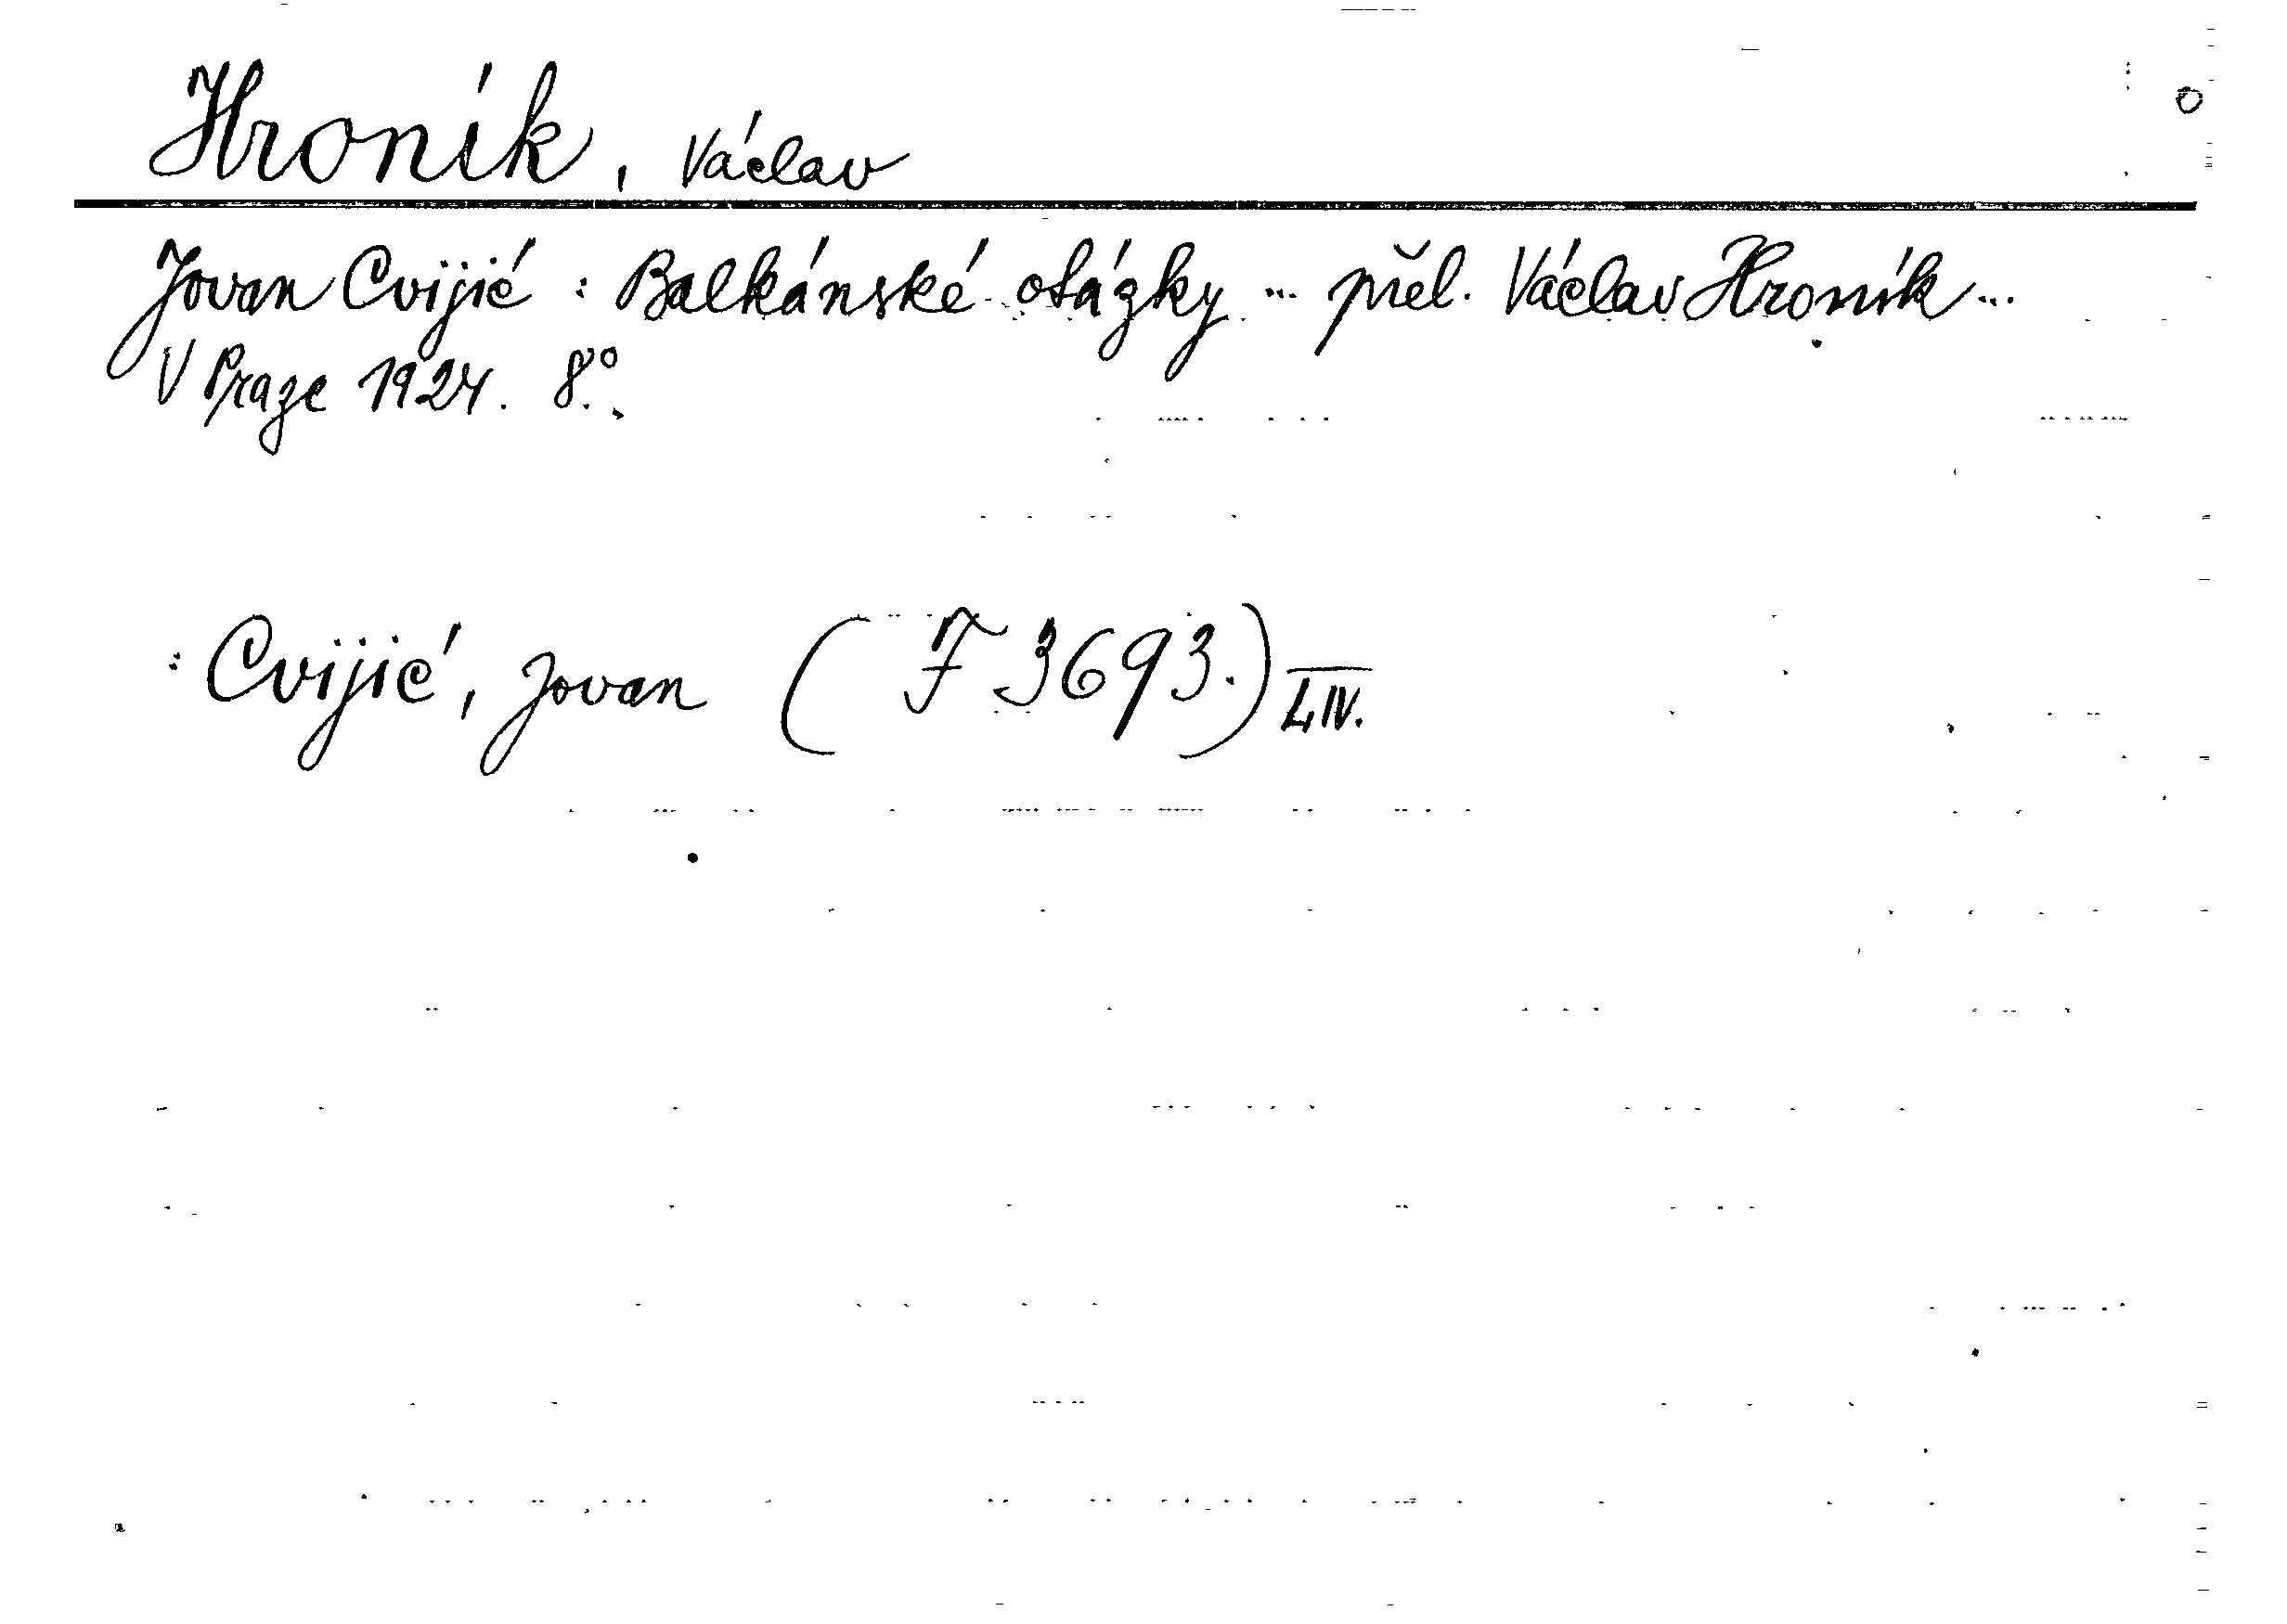 Hroník, Václav
Jovan Cvijić : Balkánské otázky ... přel. Václav Hroník ...
V Praze 1924. 8°.
: Cvijić, Jovan ( F 3693.) LIV.